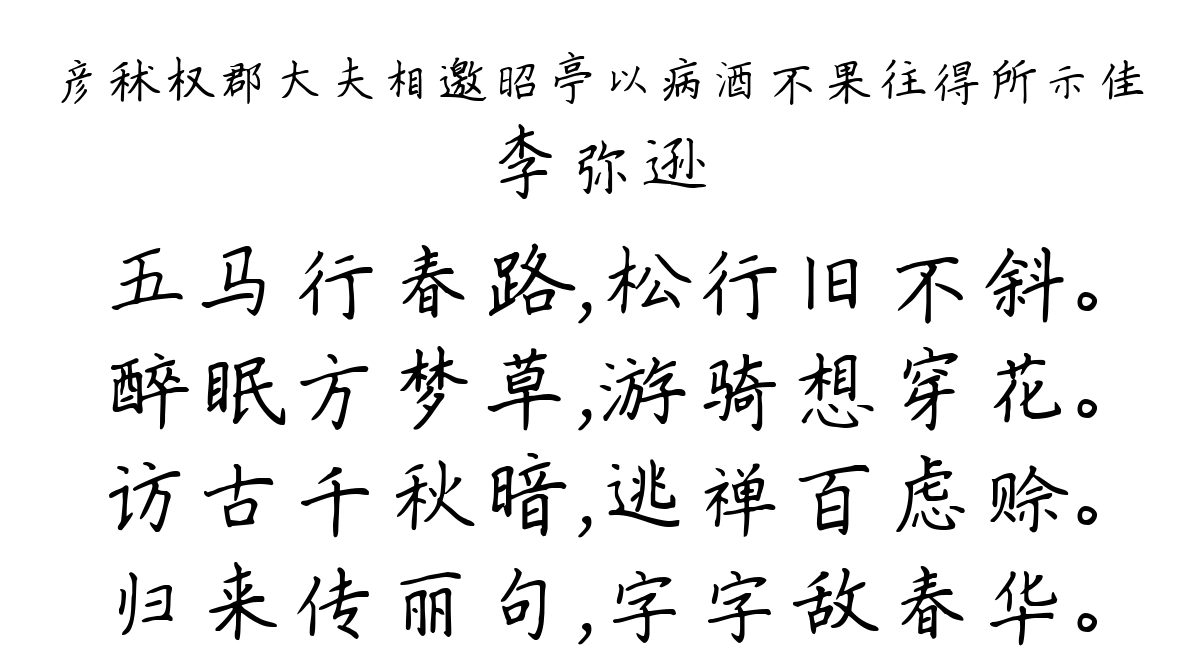 彦秫权郡大夫相邀昭亭以病酒不果往得所示佳
李弥逊
五马行春路,松行旧不斜。
醉眠方梦草,游骑想穿花。
访古千秋暗,逃禅百虑赊。
归来传丽句,字字敌春华。